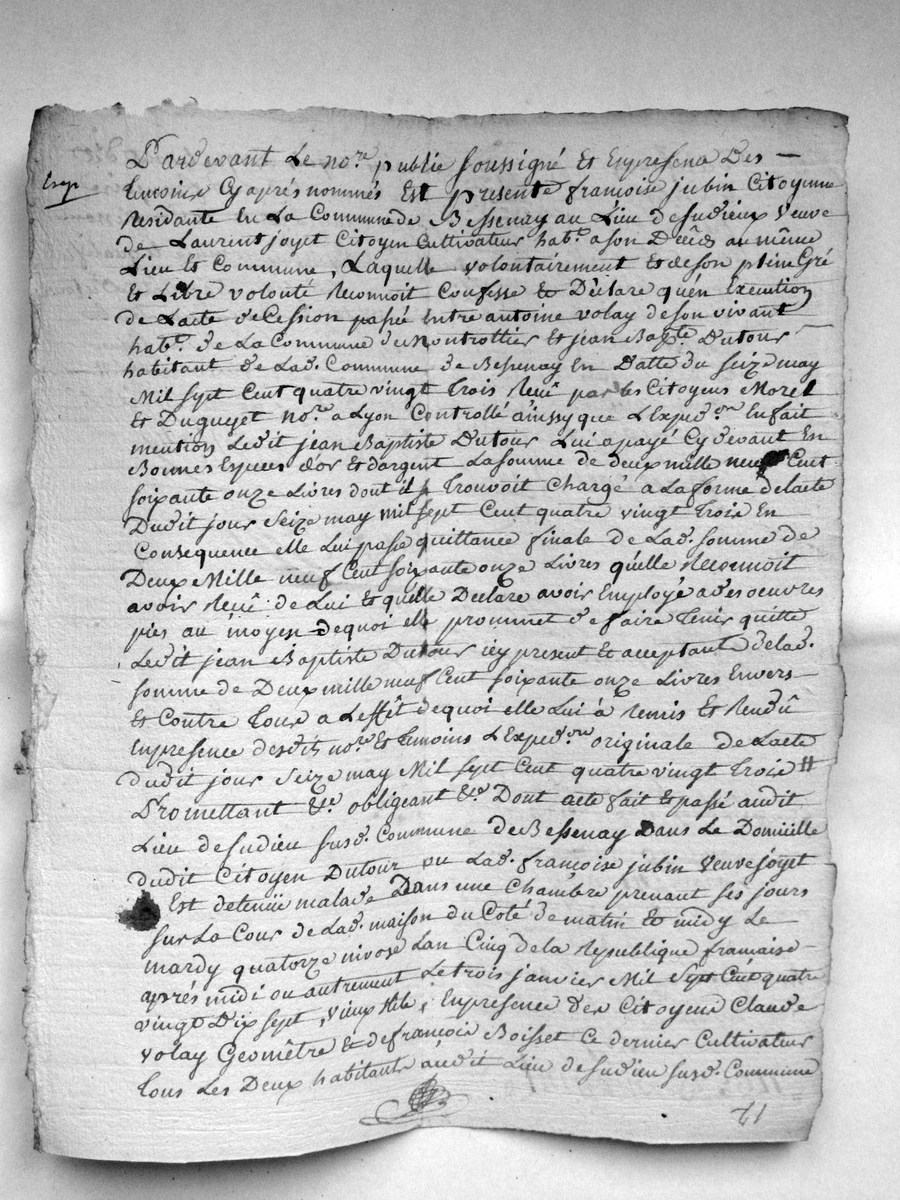 Pardevant Le no.re public soussigné Et Enpresence Des
Exp
temoins Cy après nommés Est presente françoise jubin Citoyenne
Residante En La Commune de Bessenay au Lieu de sudieux Veuve
de Laurent joyet Citoyen Cultivateur hab.t a son Décès au même
Lieu Et Commune, Laquelle volontairement Et de son plein Gré
Et Libre volonté Reconnoit Confesse & Déclare qu'en Execution
de Lacte de Cession passé Entre antoine volay de son vivant
hab.t de La Commune de Montrottier Et jean Bap.te Dutour
habitant de Lad. Commune de Bessenay En Datte du seize may
Mil sept Cent quatre vingt trois Reçû par les Citoyens Morel
Et Duguyet no.res a Lyon Controllé ainssy que L'Exped.on En fait
mention Ledit jean Baptiste Dutour Lui a payé Cy devant En
Bonnes Especes d'or Et d'argent La somme de deux mille neuf Cent
soixante onze Livres dont il se trouvoit Chargé a La forme de lacte
Dudit jour seize may mil sept Cent quatre vingt trois En
Consequence elle Lui passe quittance finale de Lad. somme de
Deux Mille neuf Cent soixante onze Livres qu'elle Reconnoit
avoir Reçû de Lui & quelle Déclare avoir Employé a des oeuvres
pies au moyen de quoi elle prommet de faire tenir quitte
Ledit jean Baptiste Dutour icy present Et acceptant de lad.
somme de Deux mille neuf Cent soixante onze Livres Envers
Et Contre tous a L'effêt de quoi elle Lui à Remis Et Rendû
Enpresence desdits no.re Et temoins L'Exped.on originale de Lacte
dudit jour seize may Mil sept Cent quatre vingt trois //
Promettant &.e obligeant &.e Dont acte fait & passé audit
Lieu de sudieu susd. Commune de Bessenay Dans Le Domicille
dudit Citoyen Dutour ou Lad. françoise jubin Veuve joyet
Est detenüe malade Dans une Chambre prenant ses jours
sur La Cour de Lad. maison du Coté de matin & midy Le
mardy quatorze nivose Lan Cinq de la Republique française
après midi ou autrement Le trois janvier Mil sept Cent quatre
vingt Dix sept, Vieux stile, Enpresence des Citoyens Claude
volay Geomêtre & de françois Boisset Ce dernier Cultivateur
tous Les Deux habitants audit Lieu de sudieu susd. Commune